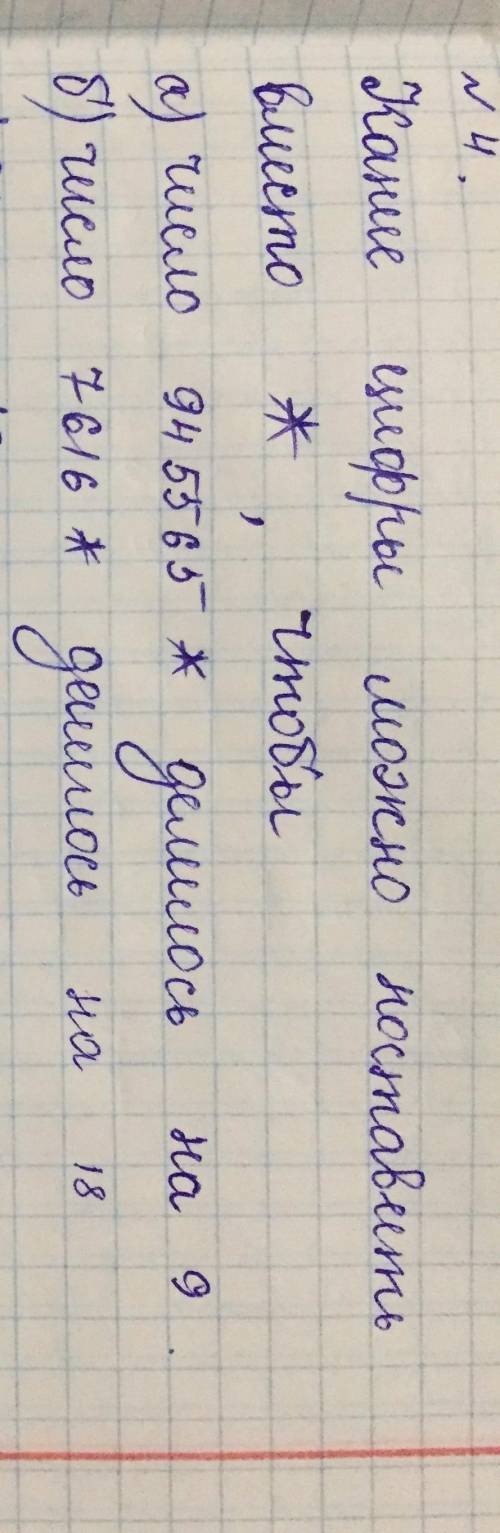 № 4.
Какие цифры можно поставить
вместо *, чтобы
а) число 945565* делилось на 9.
б) число 7616* делилось на 18